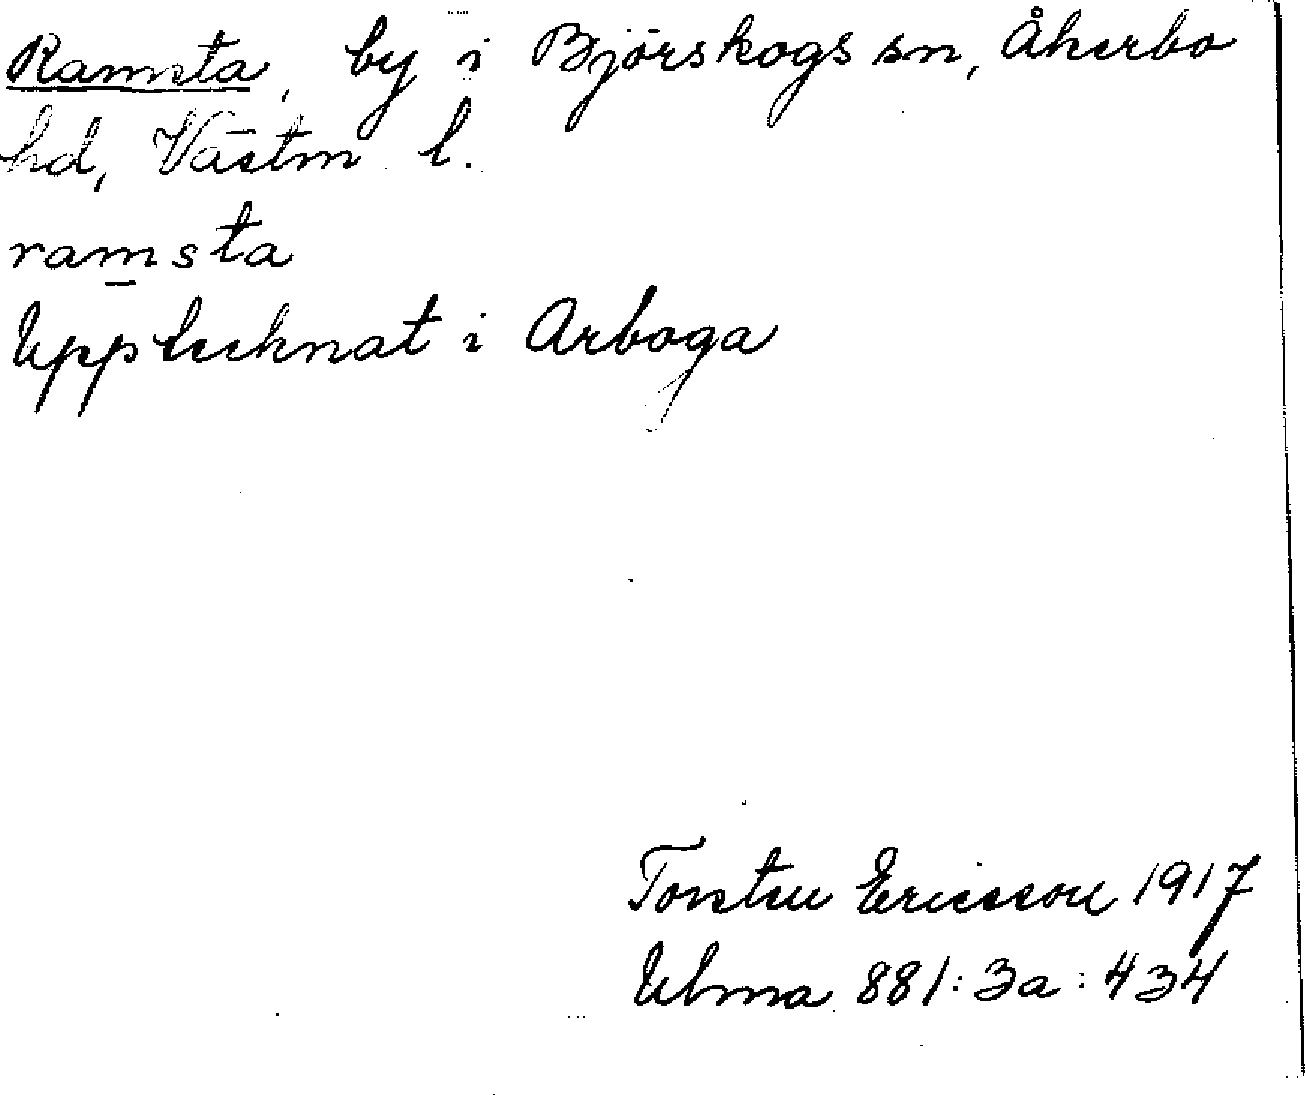 Ramsta, by i Björskogs sn, Åkerbo
hd, Västm l.
ramsta
Upptecknat i Arboga
Torsten Ericsson 1917
Ulma 881:3a:434